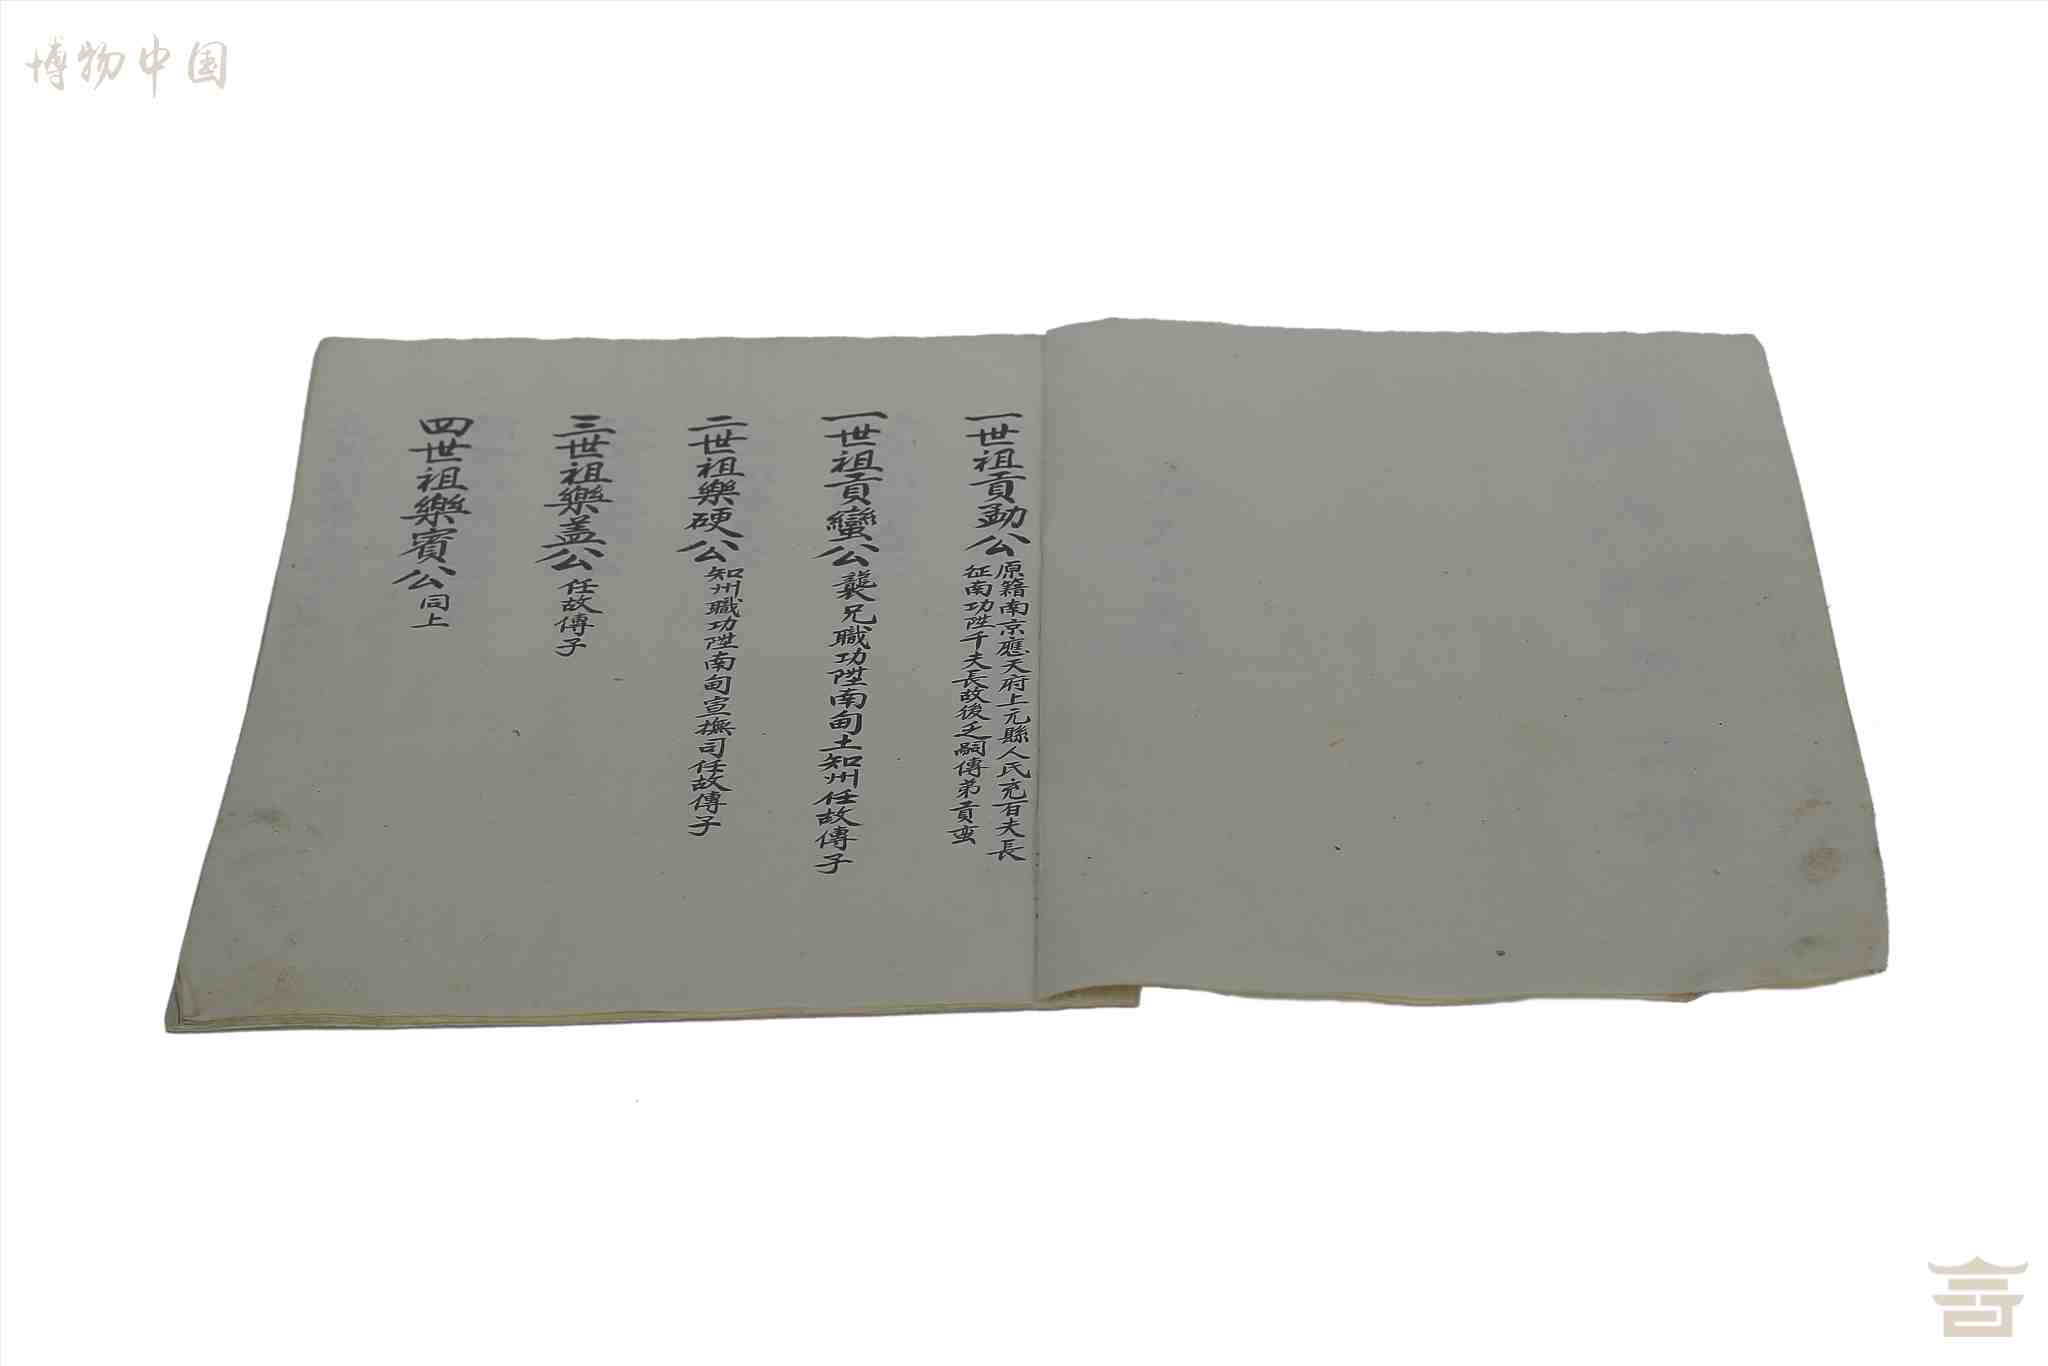 博物中国
一世祖貢勐公 原籍南京應天府上元縣人氏充百夫長
征南功陞千夫長故後乏嗣傳弟貢蛮
一世祖貢蠻公 襲兄職功陞南甸土知州任故傳子
二世祖樂硬公 知州職功陞南甸宣撫司任故傳子
三世祖樂盖公 任故傳子
四世祖樂賓公 同上